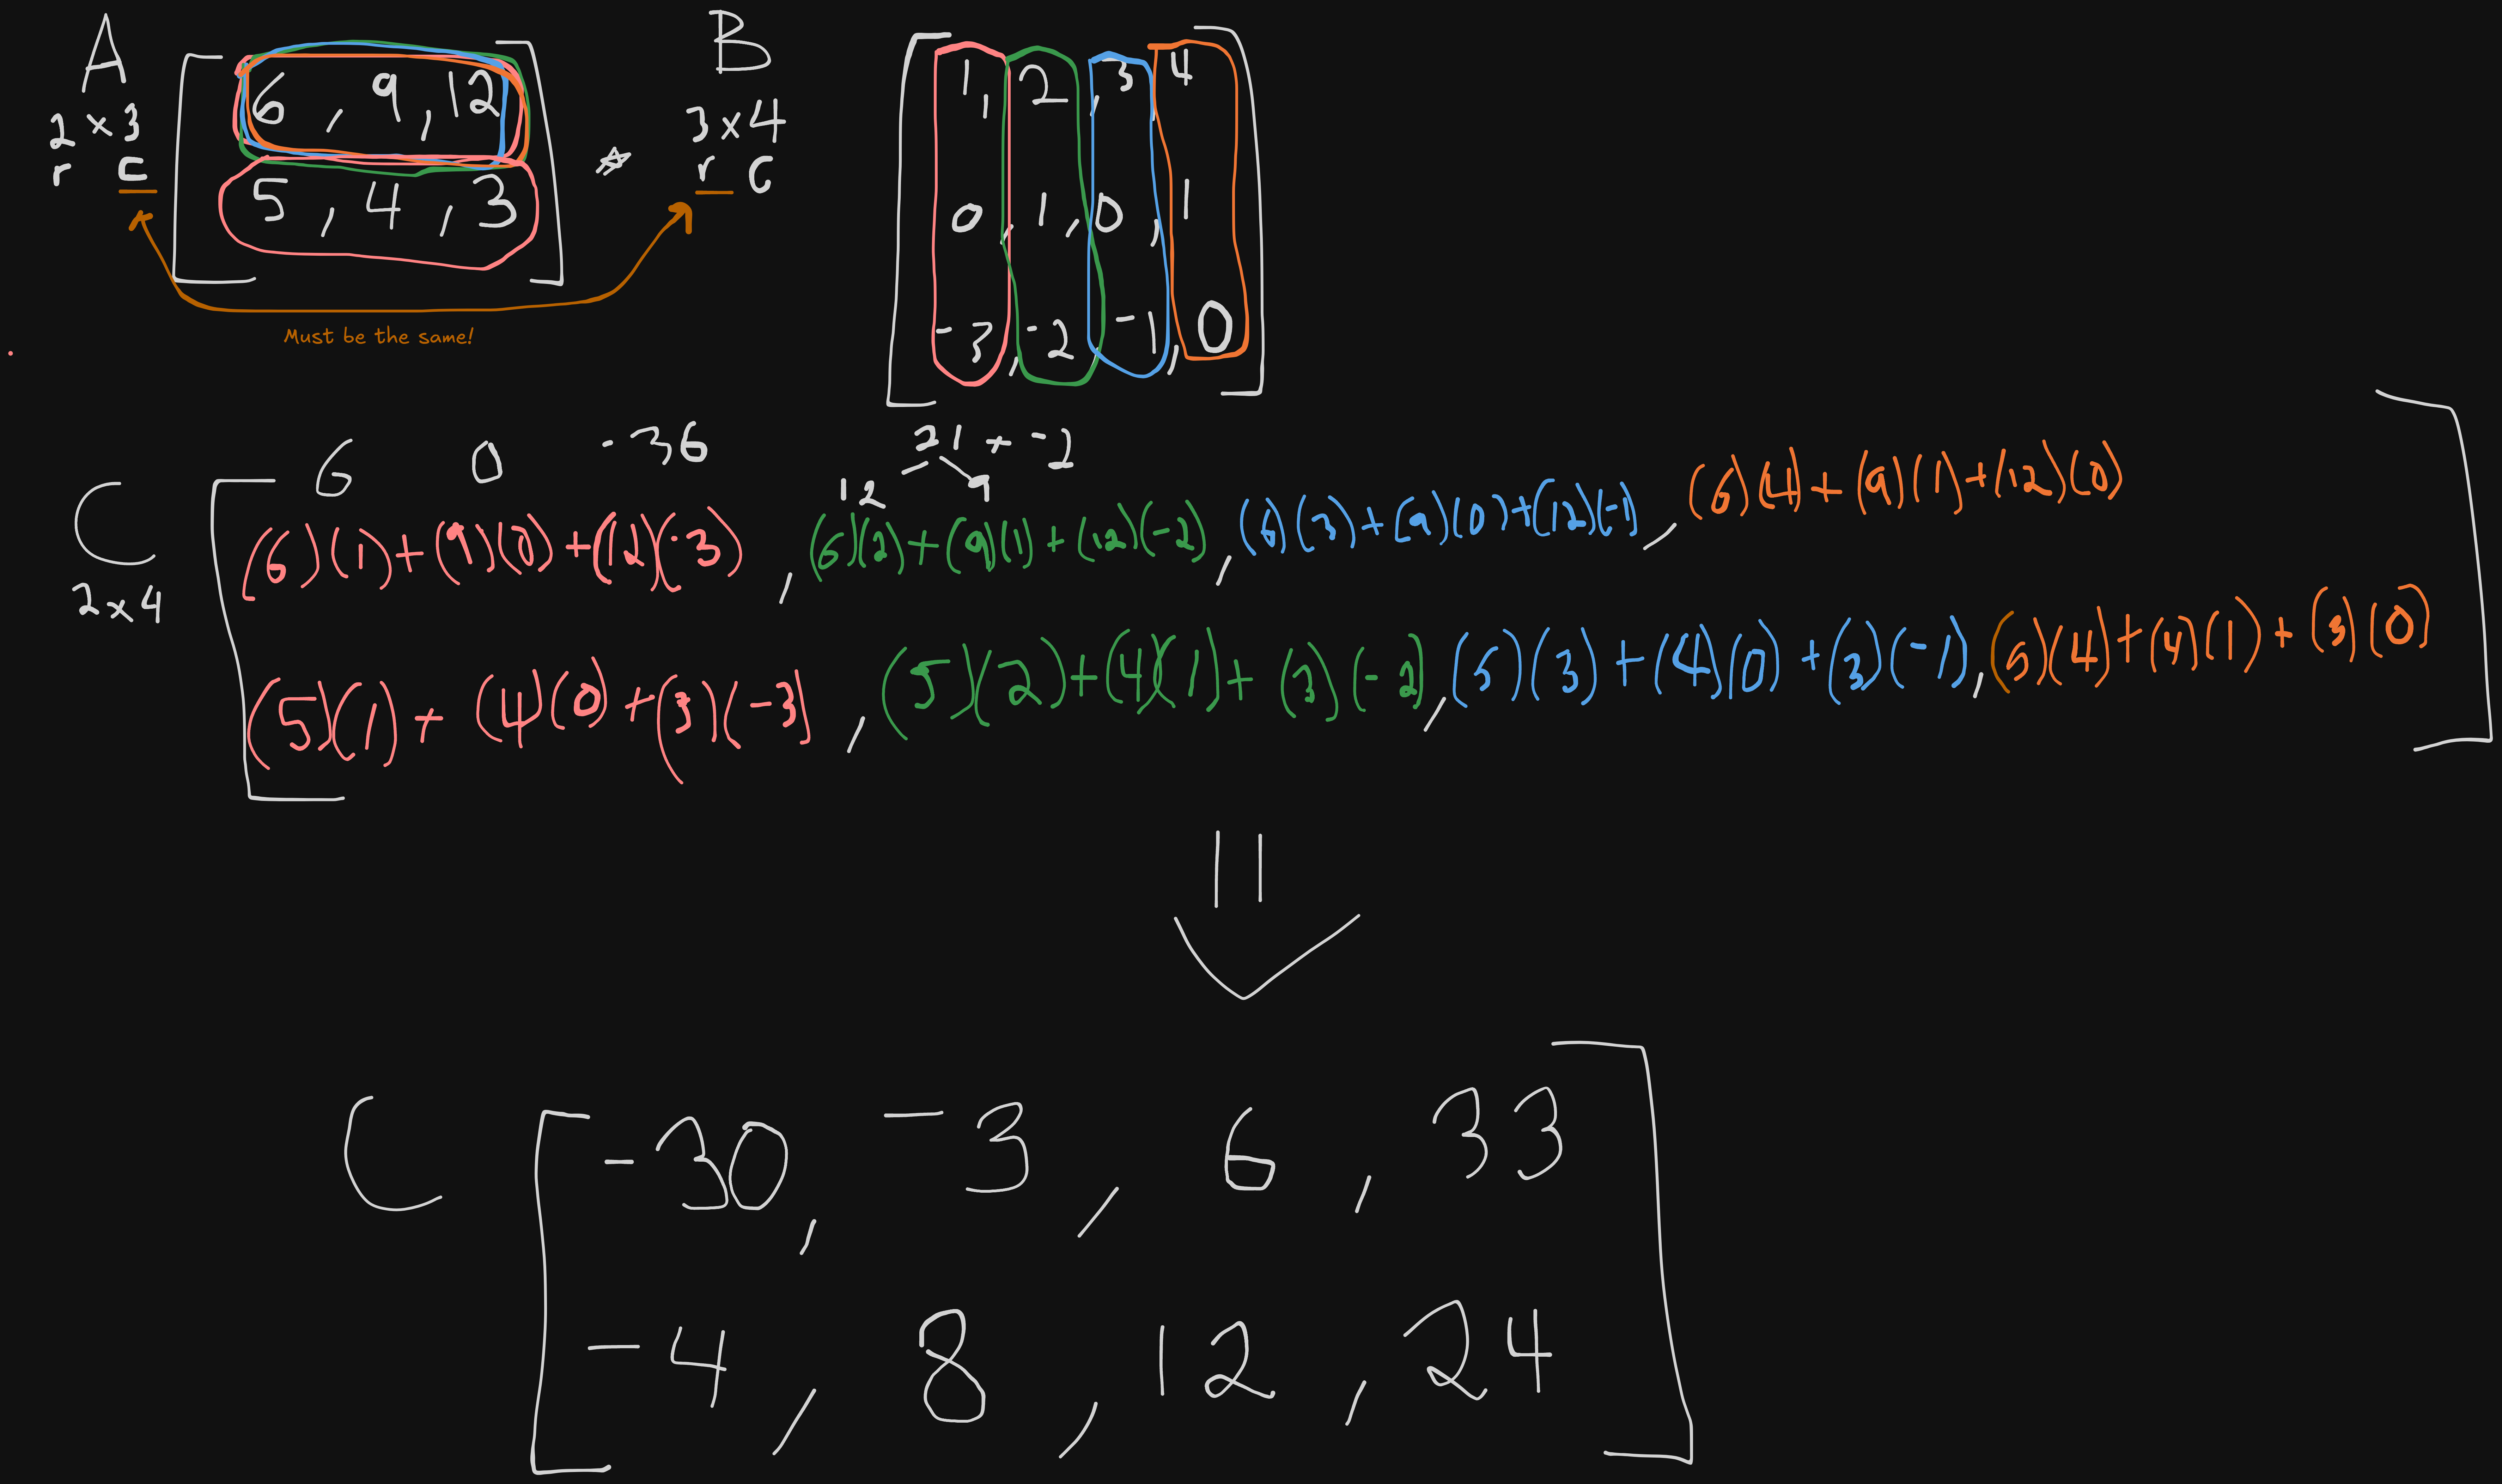 A [6, 9, 12 * B [1, 2, 3 4
2x3 3x4
r c r c
5, 4, 3] 0, 1, 0, 1
Must be the same!
-3, -2, -1, 0]
6 0 -36 21 + -2
12 9
C [(6)(1)+(9)(0)+(12)(-3), (6)(2)+(9)(1)+(12)(-2), (6)(3)+(9)(0)+(12)(-1), (6)(4)+(9)(1)+(12)(0)
2x4
(5)(1)+(4)(0)+(3)(-3), (5)(2)+(4)(1)+(3)(-2), (5)(3)+(4)(0)+(3)(-1), (5)(4)+(4)(1)+(3)(0)]
C [-30, -3, 6, 33
-4, 8, 12, 24]